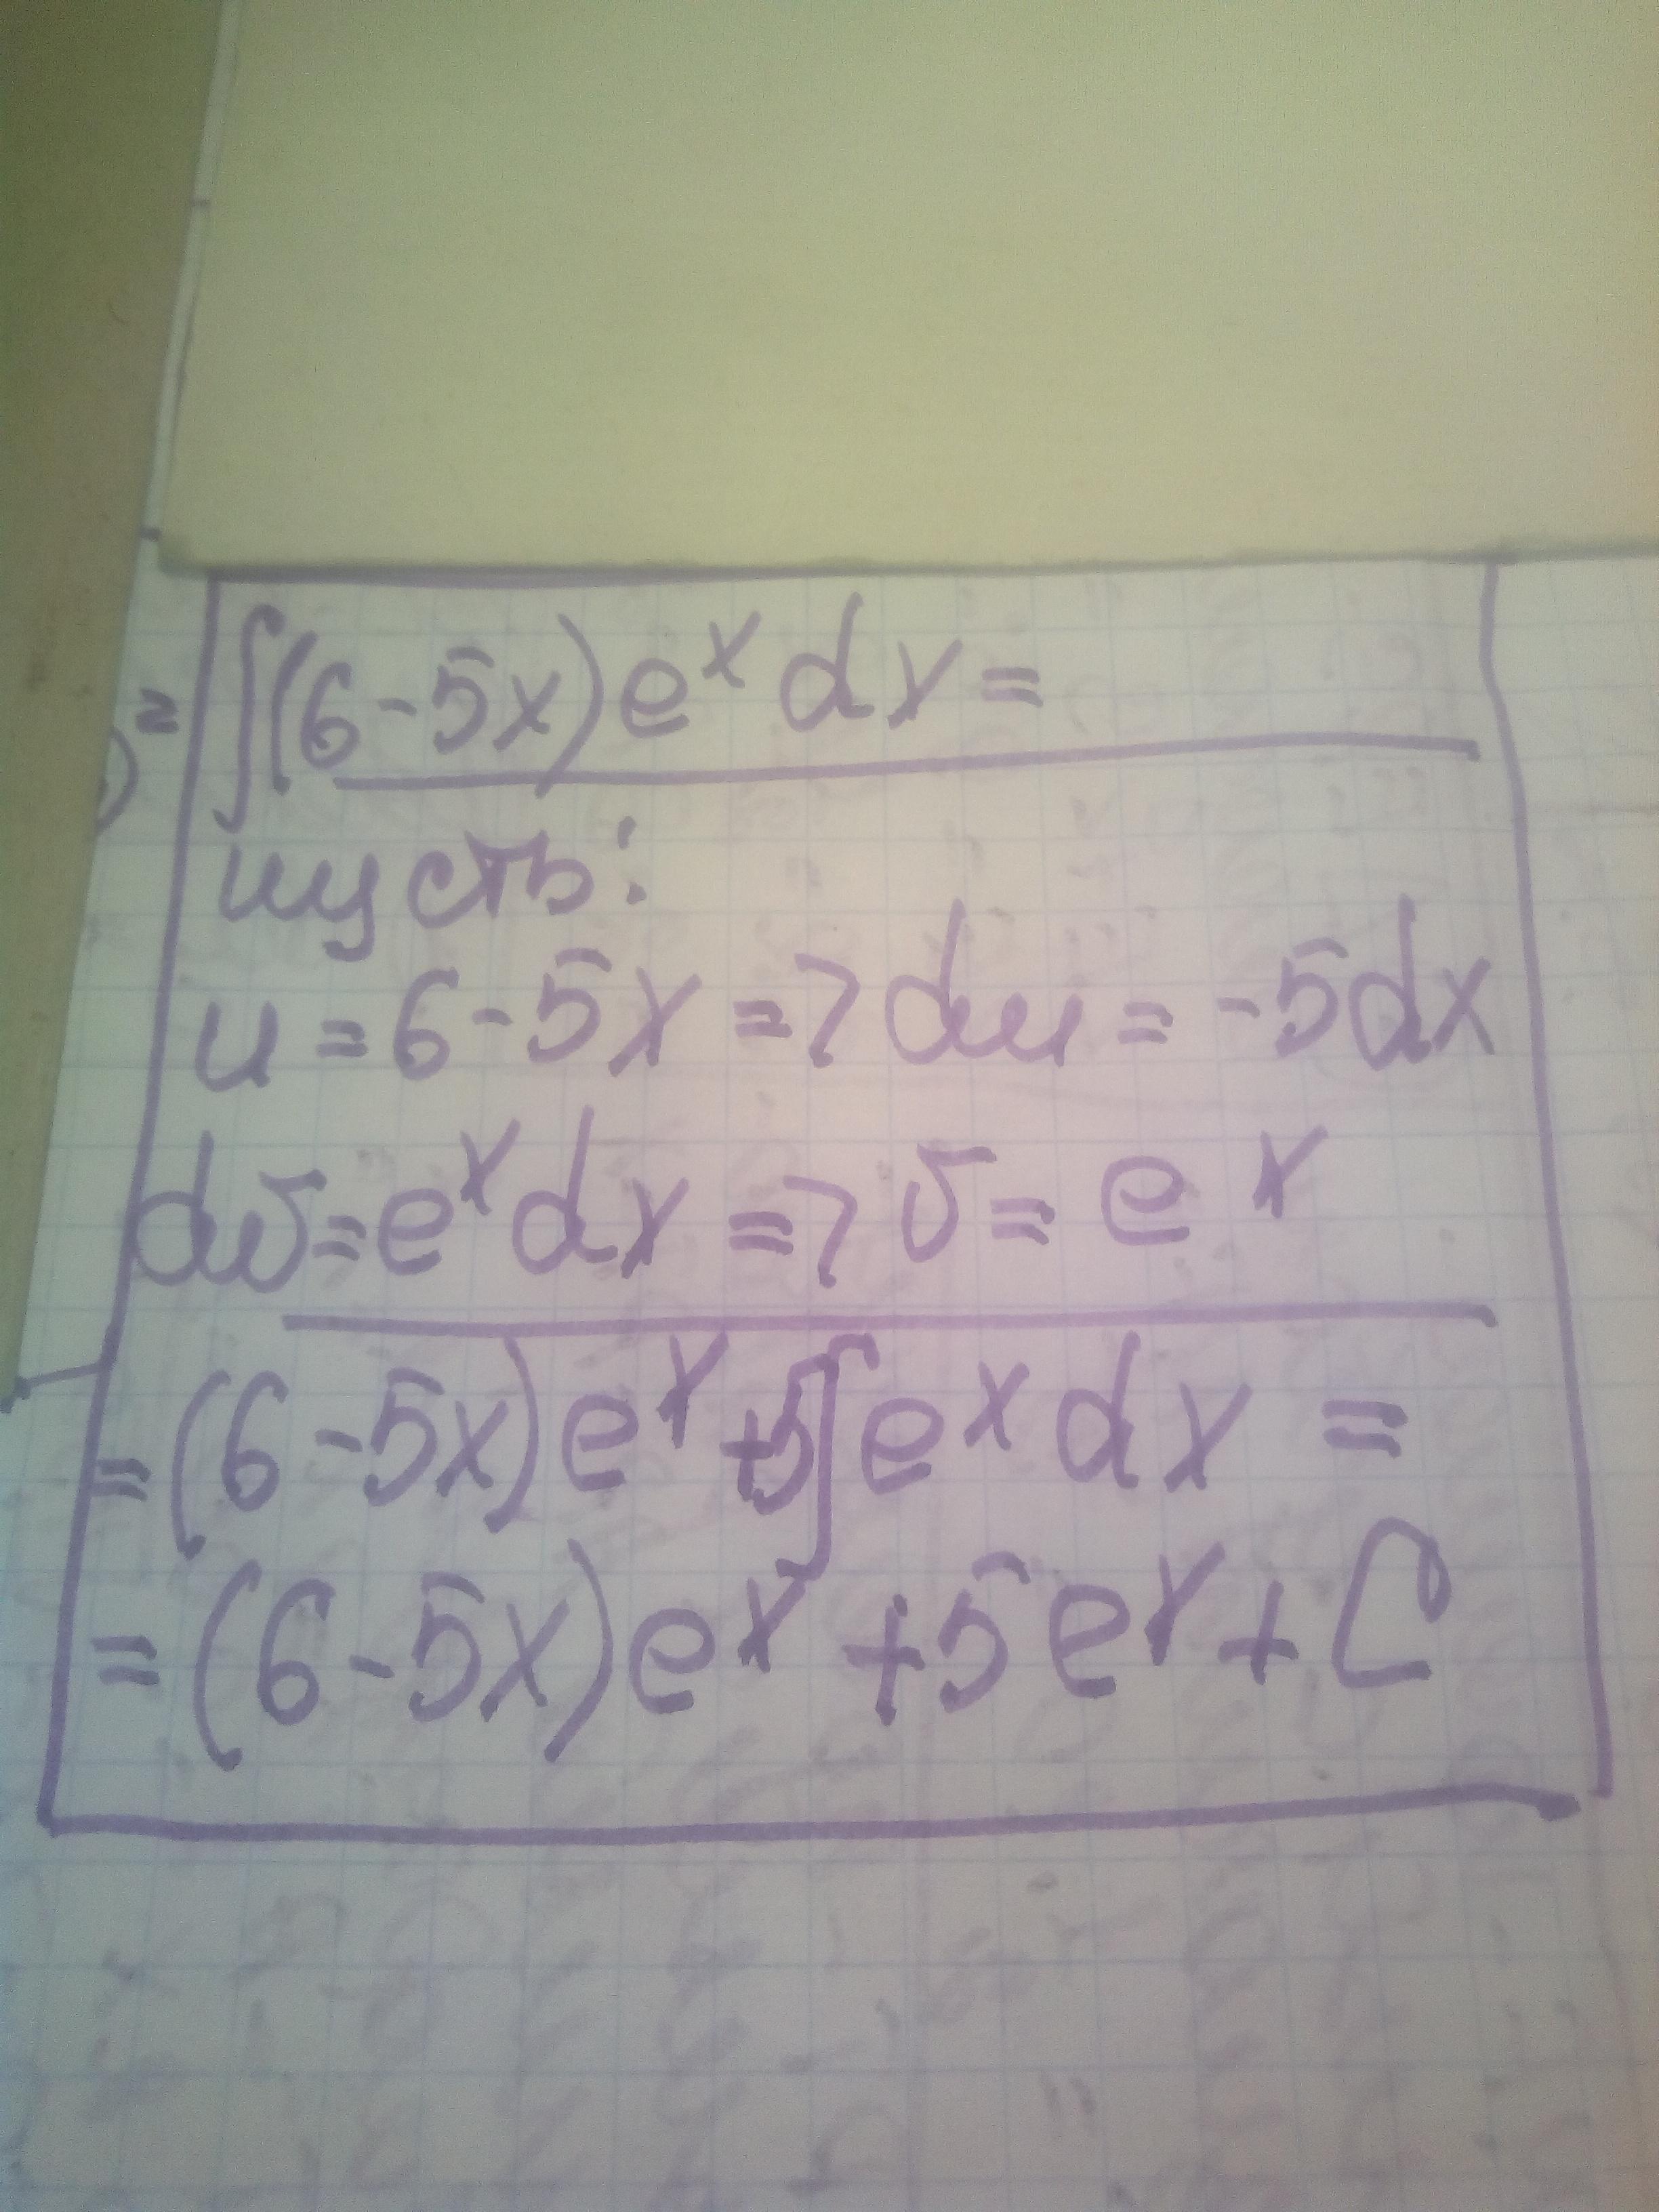 = ∫(6-5x)eˣ dx =
пусть:
u = 6-5x => du = -5dx
dv = eˣdx => v = eˣ
= (6-5x)eˣ +5∫eˣ dx =
= (6-5x)eˣ +5eˣ + C